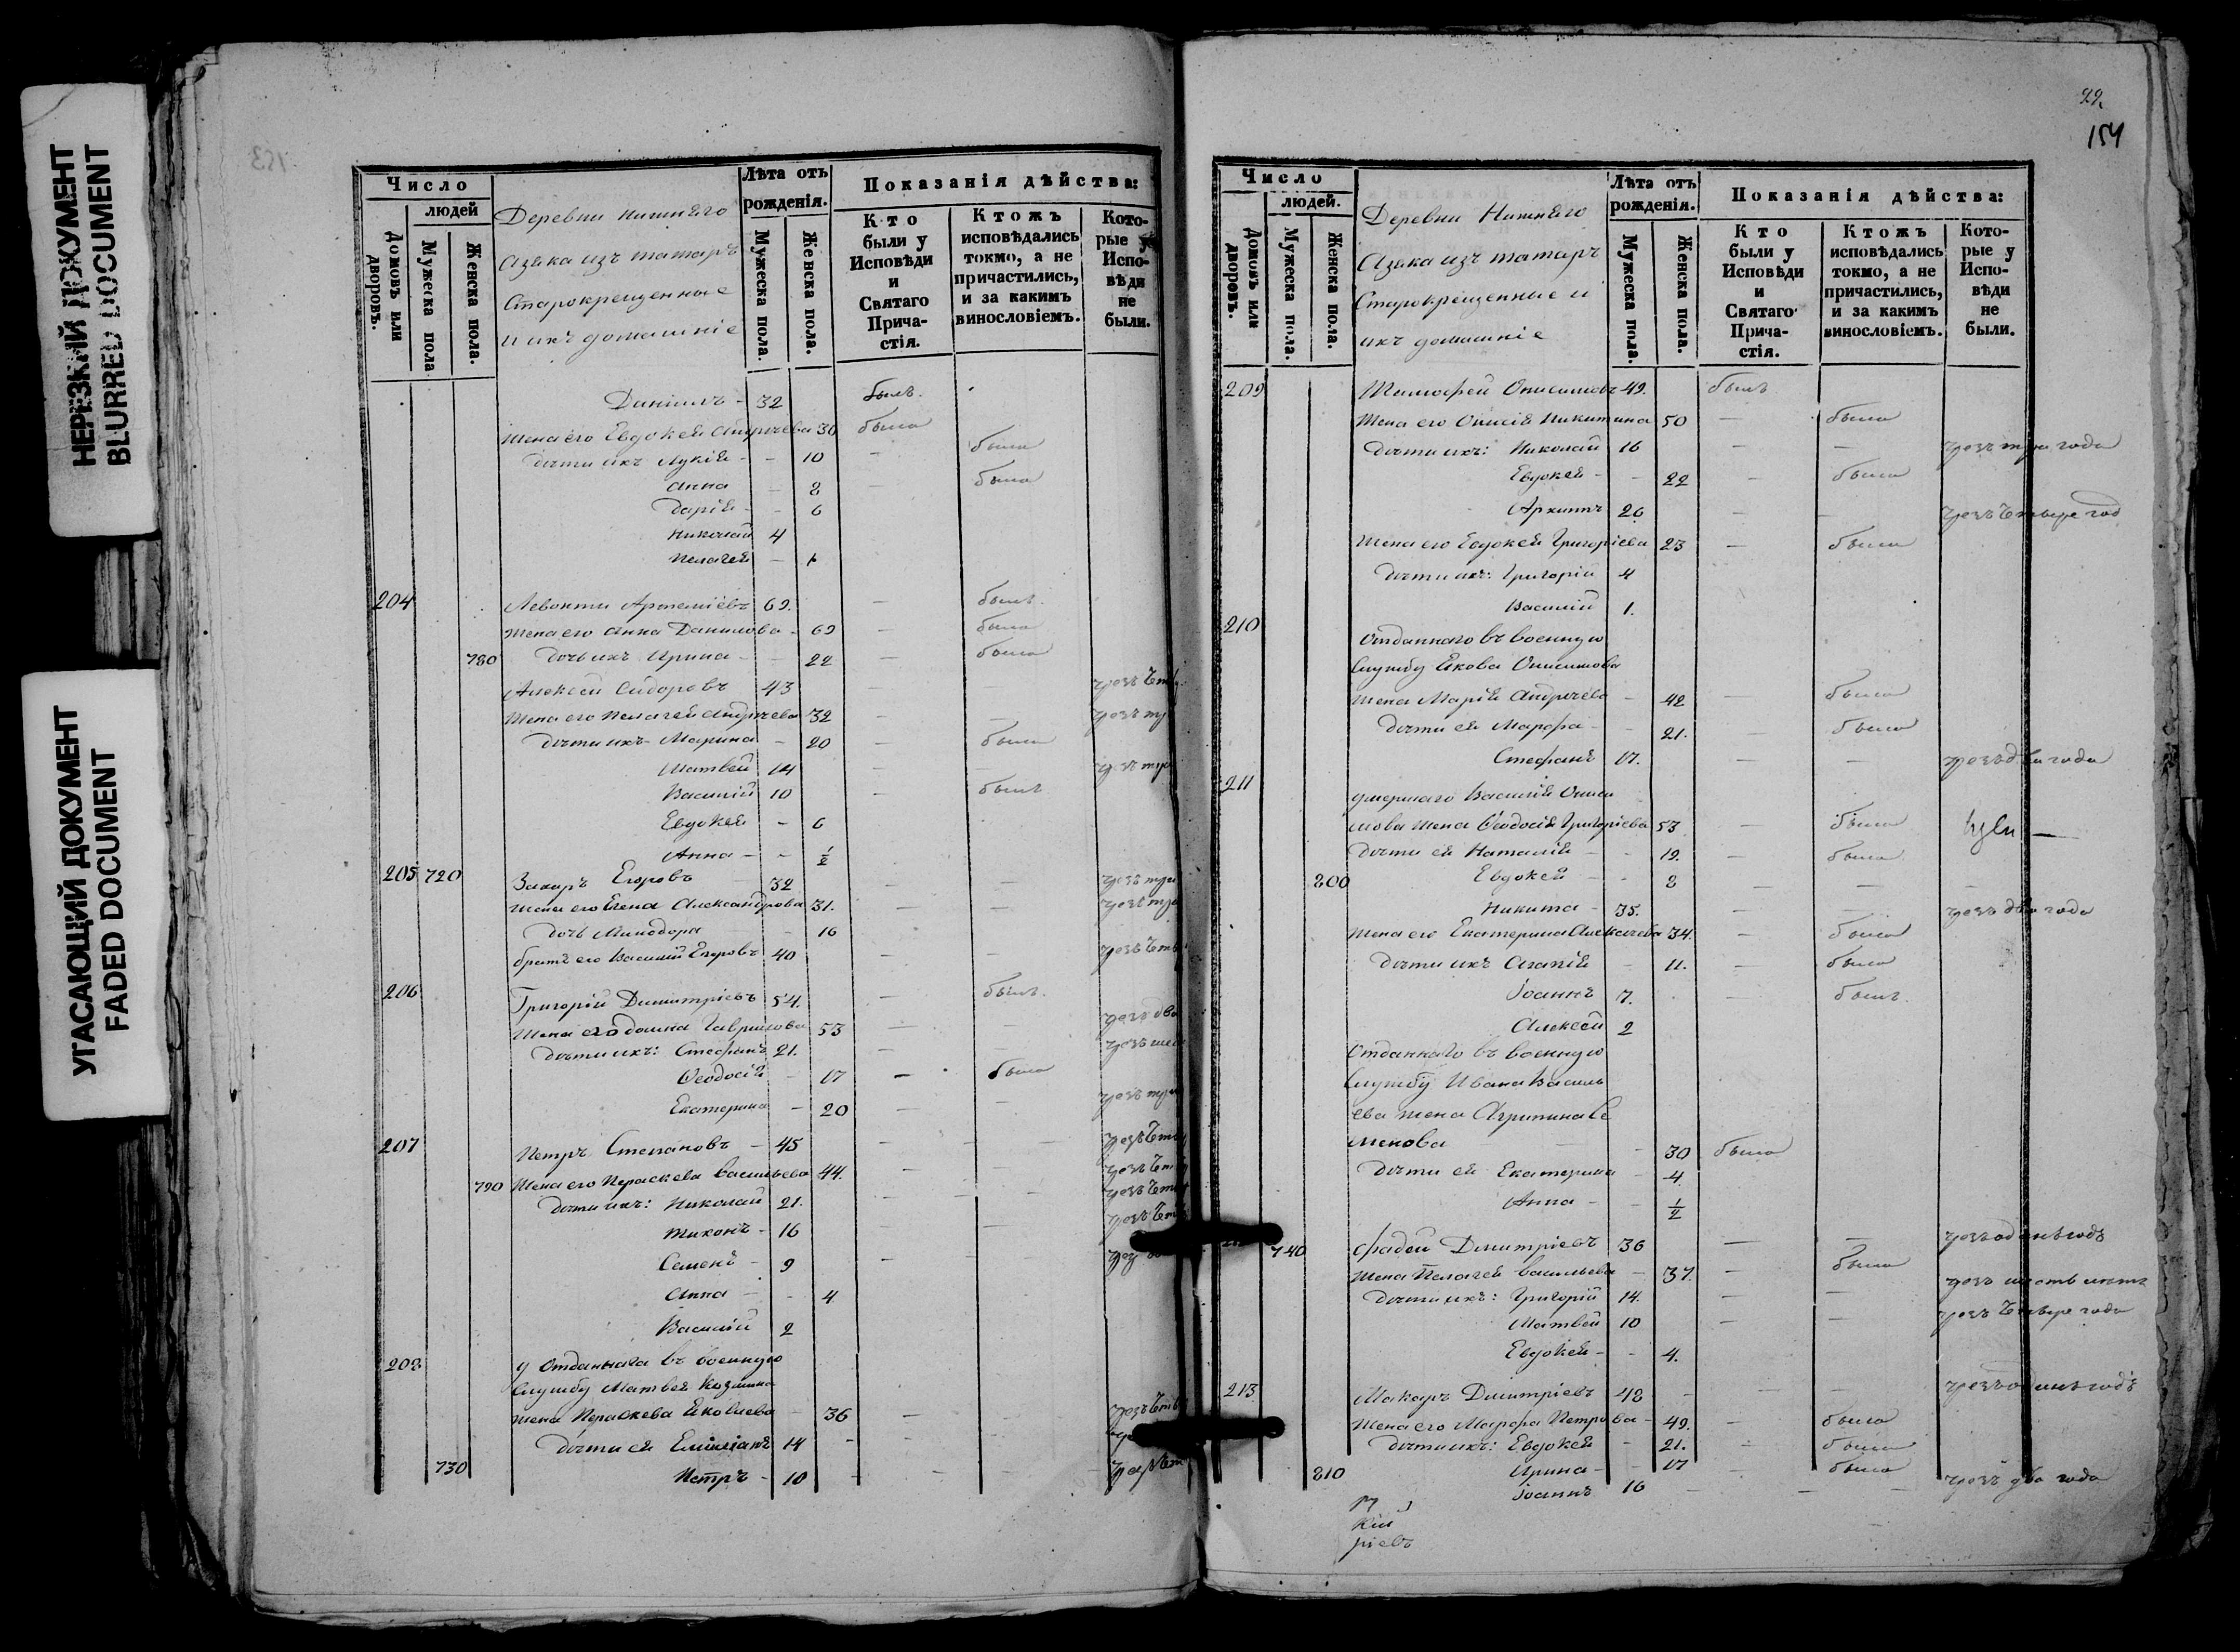 НЕРЕЗКИЙ ДОКУМЕНТ
BLURRED DOCUMENT
УГАСАЮЩИЙ ДОКУМЕНТ
FADED DOCUMENT
153
Число
людей
Домовъ или дворовъ.
Мужеска пола
Женска пола.
Деревни Нижняго
Азяка изъ татаръ
Старокрещенные
и ихъ домашніе
Лѣта отъ рожденія.
Мужеска пола.
Женска пола.
Показанія дѣйства:
Кто были у Исповѣди и Святаго Прича-стія.
Ктожъ исповѣдались токмо, а не причастились, и за какимъ винословіемъ.
Кото-рые у Испо-вѣди не были.
Даніилъ - 32 былъ.
Жена его Евдокея Андреева 30 была
дѣти ихъ Лукія - - 10 - была
Анна - 8 - была
Дарія - - 6
Николай 4
Пелагея - 1
204 Левонти Артеміевъ 69. - былъ.
Жена его Анна Данилова - 69 - была
780 дочь ихъ Ирина - - 22 - была
Алексей Сидоровъ 43 -
Жена его Пелагея Андреева 32 - -
дѣти ихъ Марина - 20 - была
Матвей 14 - -
Василій 10 - былъ
Евдокея - 6
Анна - - 1/2
205 720 Захаръ Егоровъ - 32 - - чрезъ три
Жена его Елена Александрова 31. - - чрезъ три
дочь Минодора - 16
братъ его Василій Егоровъ 40 - -
206 Григорій Димитріевъ 54. - былъ.
Жена его Домна Гаврилова 53 - чрезъ два
дѣти ихъ: Стефанъ 21. - -
Ѳеодосія - 17 - была
Екатерина - 20 - - чрезъ три
207 Петръ Степановъ - 45 - - -
790 Жена его Параскева Васильева 44. - -
дѣти ихъ: Николай 21. - - -
Тихонъ - 16 - -
Семенъ - 9 -
Анна - - 4
Василій 2
208 у Отданнаго въ военную
службу Матвея Козмина
жена Параскева Яковлева - 36 - -
дѣти ея Емиліанъ 14 - - -
730 Петръ - 10 - - -
22.
154
Число
людей.
Домовъ или дворовъ.
Мужеска пола.
Женска пола.
Деревни Нижняго
Азяка изъ татаръ
Старокрещенные и
ихъ домашніе
Лѣта отъ рожденія.
Мужеска пола.
Женска пола.
Показанія дѣйства:
Кто были у Исповѣди и Святаго Прича-стія.
Ктожъ исповѣдались токмо, а не причастились, и за какимъ винословіемъ.
Кото-рые у Испо-вѣди не были.
209 Тимофей Онисимовъ 49. былъ
Жена его Онисія Никитина 50 - была
дѣти ихъ: Николай 16 - - чрезъ три года
Евдокея - - 22 - была
Архипъ 26 - - чрезъ четыре год
Жена его Евдокея Григоріева 23 - была
дѣти ихъ: Григорій 4
Василій 1.
210 Отданнаго въ военную
службу Якова Онисимова
жена Марія Андреева - 42 - была
дѣти ея Марфа - - 21. - была
Стефанъ 17. - - чрезъ два года
211 умершаго Василія Ониси
мова жена Ѳеодосія Григоріева 53 - была
дѣти ея Наталія - - 19. - была
800 Евдокея - - 8 - - -
Никита - 35. - - чрезъ два года
Жена его Екатерина Алексеева 34. - была
дѣти ихъ Агапія - 11. - была
Іоаннъ 7. - былъ.
Алексей 2
Отданнаго въ военную
службу Ивана Василь
ева жена Агрипина Се
менова - 30 была
дѣти ея Екатерина - 4.
Анна - - 1/2
740 Фадей Димитріевъ 36 - - чрезъ одинъ годъ
Жена Пелагея Васильева - 37. - была
дѣти ихъ: Григорій 14. - - чрезъ шесть летъ
Матвей 10 - - чрезъ четыре года
Евдокея - - 4.
213 Макаръ Димитріевъ 48 - - - чрезъ одинъ годъ
Жена его Марфа Петрова - 49. - была
дѣти ихъ: Евдокея - 21. - была
810 Ирина - - 17 - была
Іоаннъ 16 - - - чрезъ два года
ріевъ